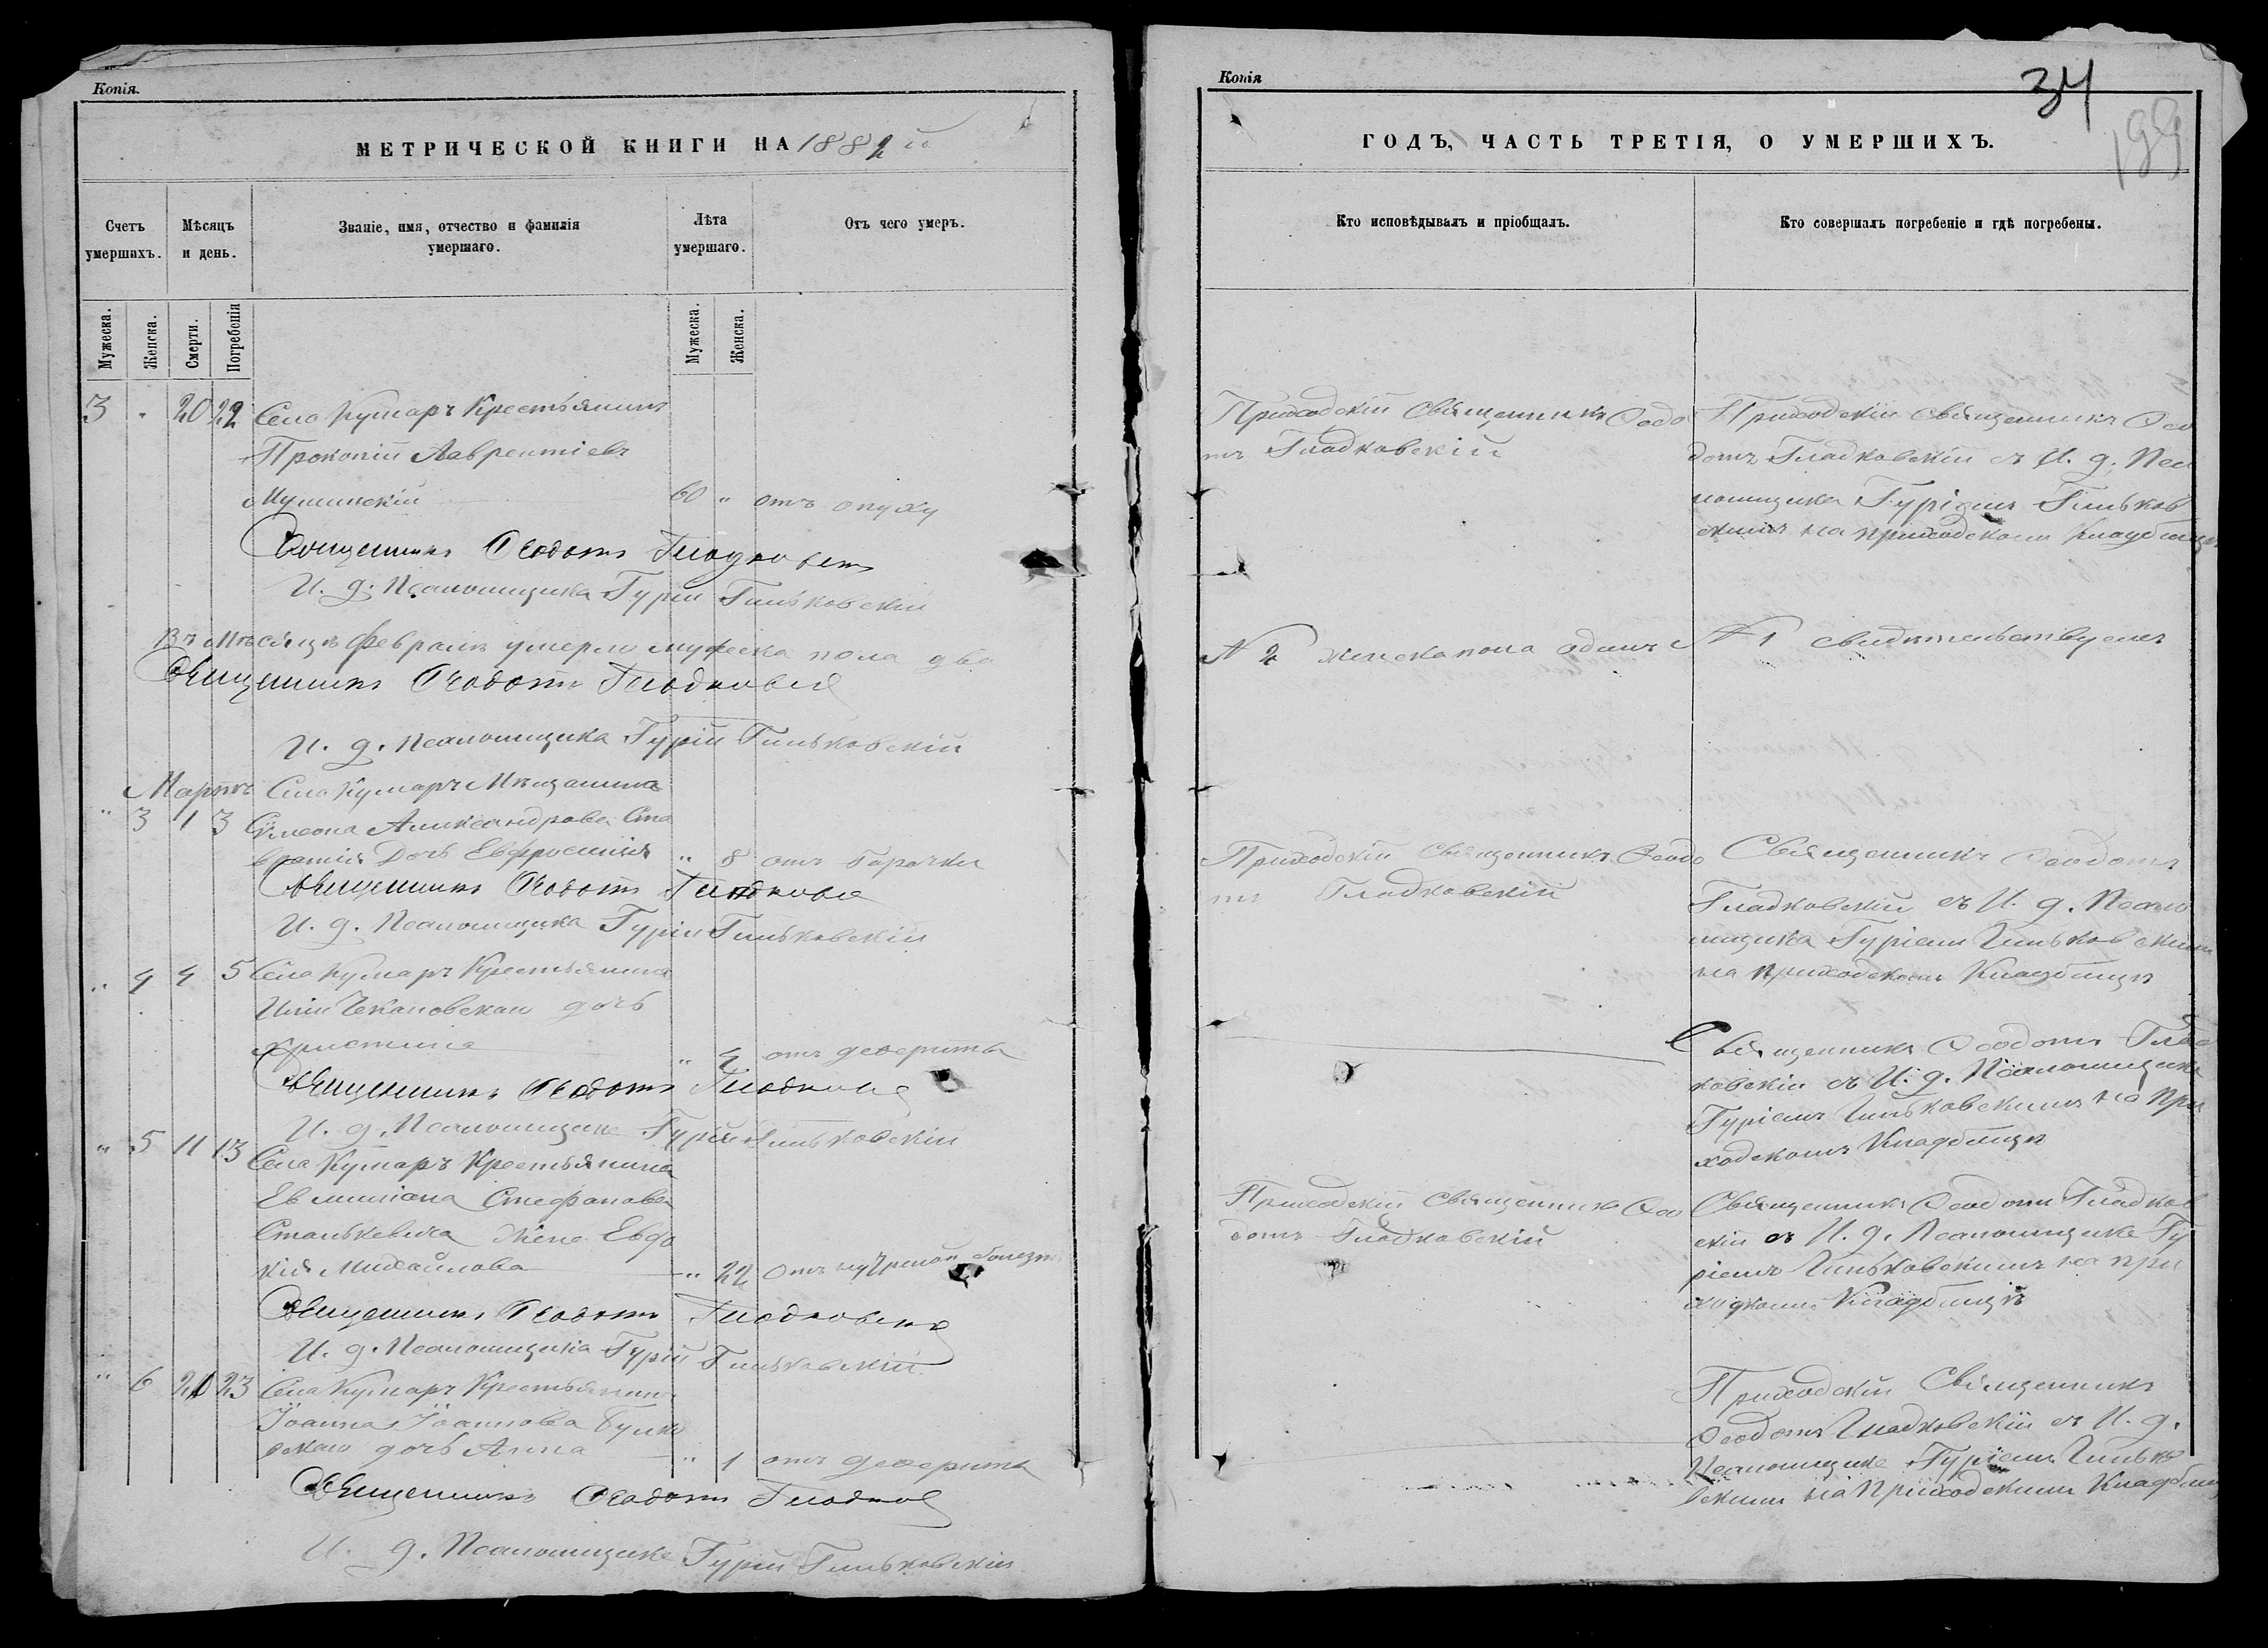 Копія.
МЕТРИЧЕСКОЙ КНИГИ НА 1882 й
Счетъ умершихъ.
Мѣсяцъ и день.
Званіе, имя, отчество и фамилія умершаго.
Лѣта умершаго.
Отъ чего умеръ.
Мужеска.
Женска.
Смерти.
Погребенія
Мужеска.
Женска.
3 " 20 22 Села Кумаръ Крестьянинъ
Прокопій Лаврентіевъ
60 " отъ опуху
Священникъ Ѳеодотъ Гладковскій
И. д. Псаломщика Гурій Гиньковскій
Въ Мѣсяцѣ Февралѣ умерло мужеска пола два
Священникъ Ѳеодотъ Гладковскій
И. д. Псаломщика Гурій Гиньковскій
Мартъ Села Кумаръ Мѣщанина
" 3 1 3 Сѵмеона Александрова
дочь Евфросинія " 8 отъ Горячки
Священникъ Ѳеодотъ Гладковскій
И. д. Псаломщика Гурій Гиньковскій
" 4 4 5 Села Кумаръ Крестьянина
Иліи Чекановскаго дочь
Христина " 4 отъ деферита
Священникъ Ѳеодотъ Гладковскій
И. д. Псаломщика Гурій Гиньковскій
" 5 11 13 Села Кумаръ Крестьянина
Емиліана Стефанова
Станкевича жена Евдо
кія Михайлова " 22 отъ болезн
Священникъ Ѳеодотъ Гладковскій
И. д. Псаломщика Гурій Гиньковскій
" 6 20 23 Села Кумаръ Крестьянина
Іоанна Іоаннова
дочь Анна " 1 отъ деферита
Священникъ Ѳеодотъ Гладков
И. д. Псаломщика Гурій Гиньковскій
Копія
34
199
ГОДЪ, ЧАСТЬ ТРЕТІЯ, О УМЕРШИХЪ.
Кто исповѣдывалъ и пріобщалъ.
Кто совершалъ погребеніе и гдѣ погребены.
Приходскій Священникъ Ѳеодо
тъ Гладковскій
Приходскій Священникъ Ѳео
дотъ Гладковскій съ И. д. Пса
ломщика Гуріемъ Гиньков
скимъ на приходскомъ Кладбищѣ
№ 2 женска пола одинъ № 1 свидѣтельствуемъ
Приходскій Священникъ Ѳеодо
тъ Гладковскій
Священникъ Ѳеодотъ
Гладковскій съ И. д. Псало
мщика Гуріемъ Гиньковскимъ
на приходскомъ Кладбищѣ
Священникъ Ѳеодотъ Глад
ковскій съ И. д. Псаломщика
Гуріемъ Гиньковскимъ на при
ходскомъ Кладбищѣ
Приходскій Священникъ Ѳео
дотъ Гладковскій
Священникъ Ѳеодотъ Гладков
скій съ И. д. Псаломщика Гу
ріемъ Гиньковскимъ на при
ходскомъ Кладбищѣ
Приходскій Священникъ
Ѳеодотъ Гладковскій съ И. д.
Псаломщика Гуріемъ Гинько
вскимъ на Приходскимъ Кладбищ